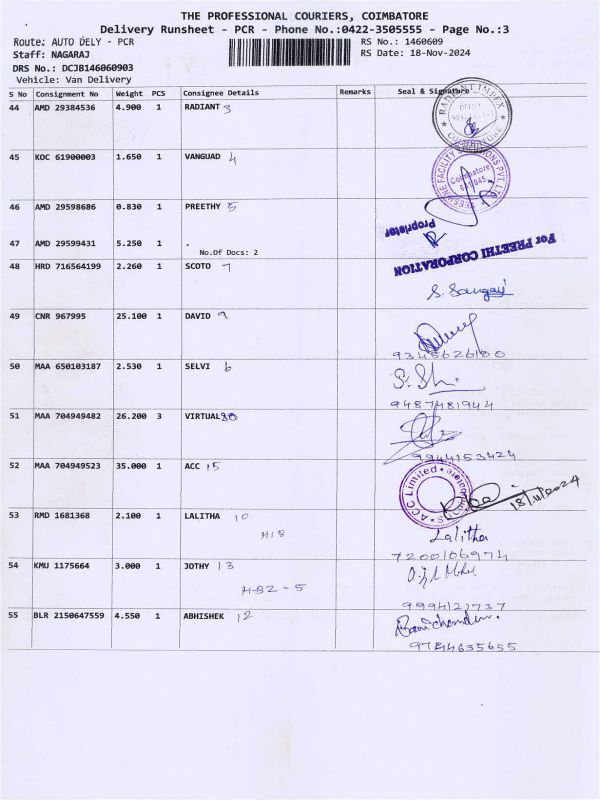 THE PROFESSIONAL COURIERS, COIMBATORE
Delivery Runsheet - PCR - Phone No.:0422-3505555 - Page No.:3
Route: AUTO DELY - PCR
RS No.: 1460609
Staff: NAGARAJ
RS Date: 18-Nov-2024
DRS No.: DCJB146060903
Vehicle: Van Delivery
S No Consignment No Weight PCS Consignee Details Remarks Seal & Signature
44 AMD 29384536 4.900 1 RADIANT 3
RADIANT IMPEX
COIMBATORE
45 KOC 61900003 1.650 1 VANGUAD 4
Coimbatore
641 045
46 AMD 29598686 0.830 1 PREETHY 5
For PREETHI CORPORATION
Proprietor
47 AMD 29599431 5.250 1 .
No.Of Docs: 2
48 HRD 716564199 2.260 1 SCOTO 7
S. Sangavi
49 CNR 967995 25.100 1 DAVID 9
9345626180
50 MAA 650103187 2.530 1 SELVI 6
9487481944
51 MAA 704949482 26.200 3 VIRTUAL
9944153424
52 MAA 704949523 35.000 1 ACC 15
ACC Limited
53 RMD 1681368 2.100 1 LALITHA 10
H18
Lalitha
7200106974
54 KMU 1175664 3.000 1 JOTHY 13
HB2 - 5
9994121737
55 BLR 2150647559 4.550 1 ABHISHEK 12
9784635655